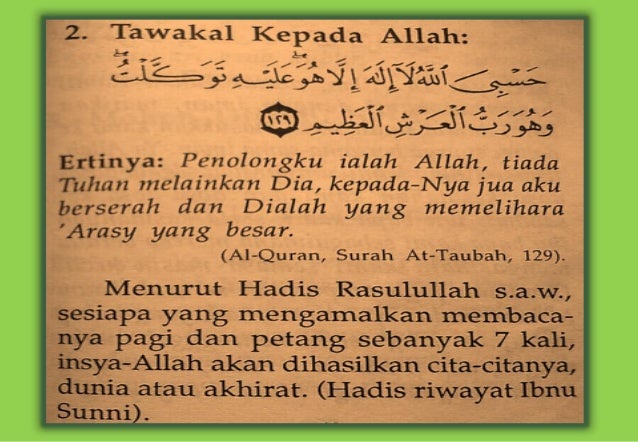 2. Tawakal Kepada Allah:
حَسْبِيَ ٱللَّهُ لَآ إِلَٰهَ إِلَّا هُوَۖ عَلَيْهِ تَوَكَّلْتُۖ
وَهُوَ رَبُّ ٱلْعَرْشِ ٱلْعَظِيمِ ١٢٩
Ertinya: Penolongku ialah Allah, tiada
Tuhan melainkan Dia, kepada-Nya jua aku
berserah dan Dialah yang memelihara
'Arasy yang besar.
(Al-Quran, Surah At-Taubah, 129).
Menurut Hadis Rasulullah s.a.w.,
sesiapa yang mengamalkan membaca-
nya pagi dan petang sebanyak 7 kali,
insya-Allah akan dihasilkan cita-citanya,
dunia atau akhirat. (Hadis riwayat Ibnu
Sunni).